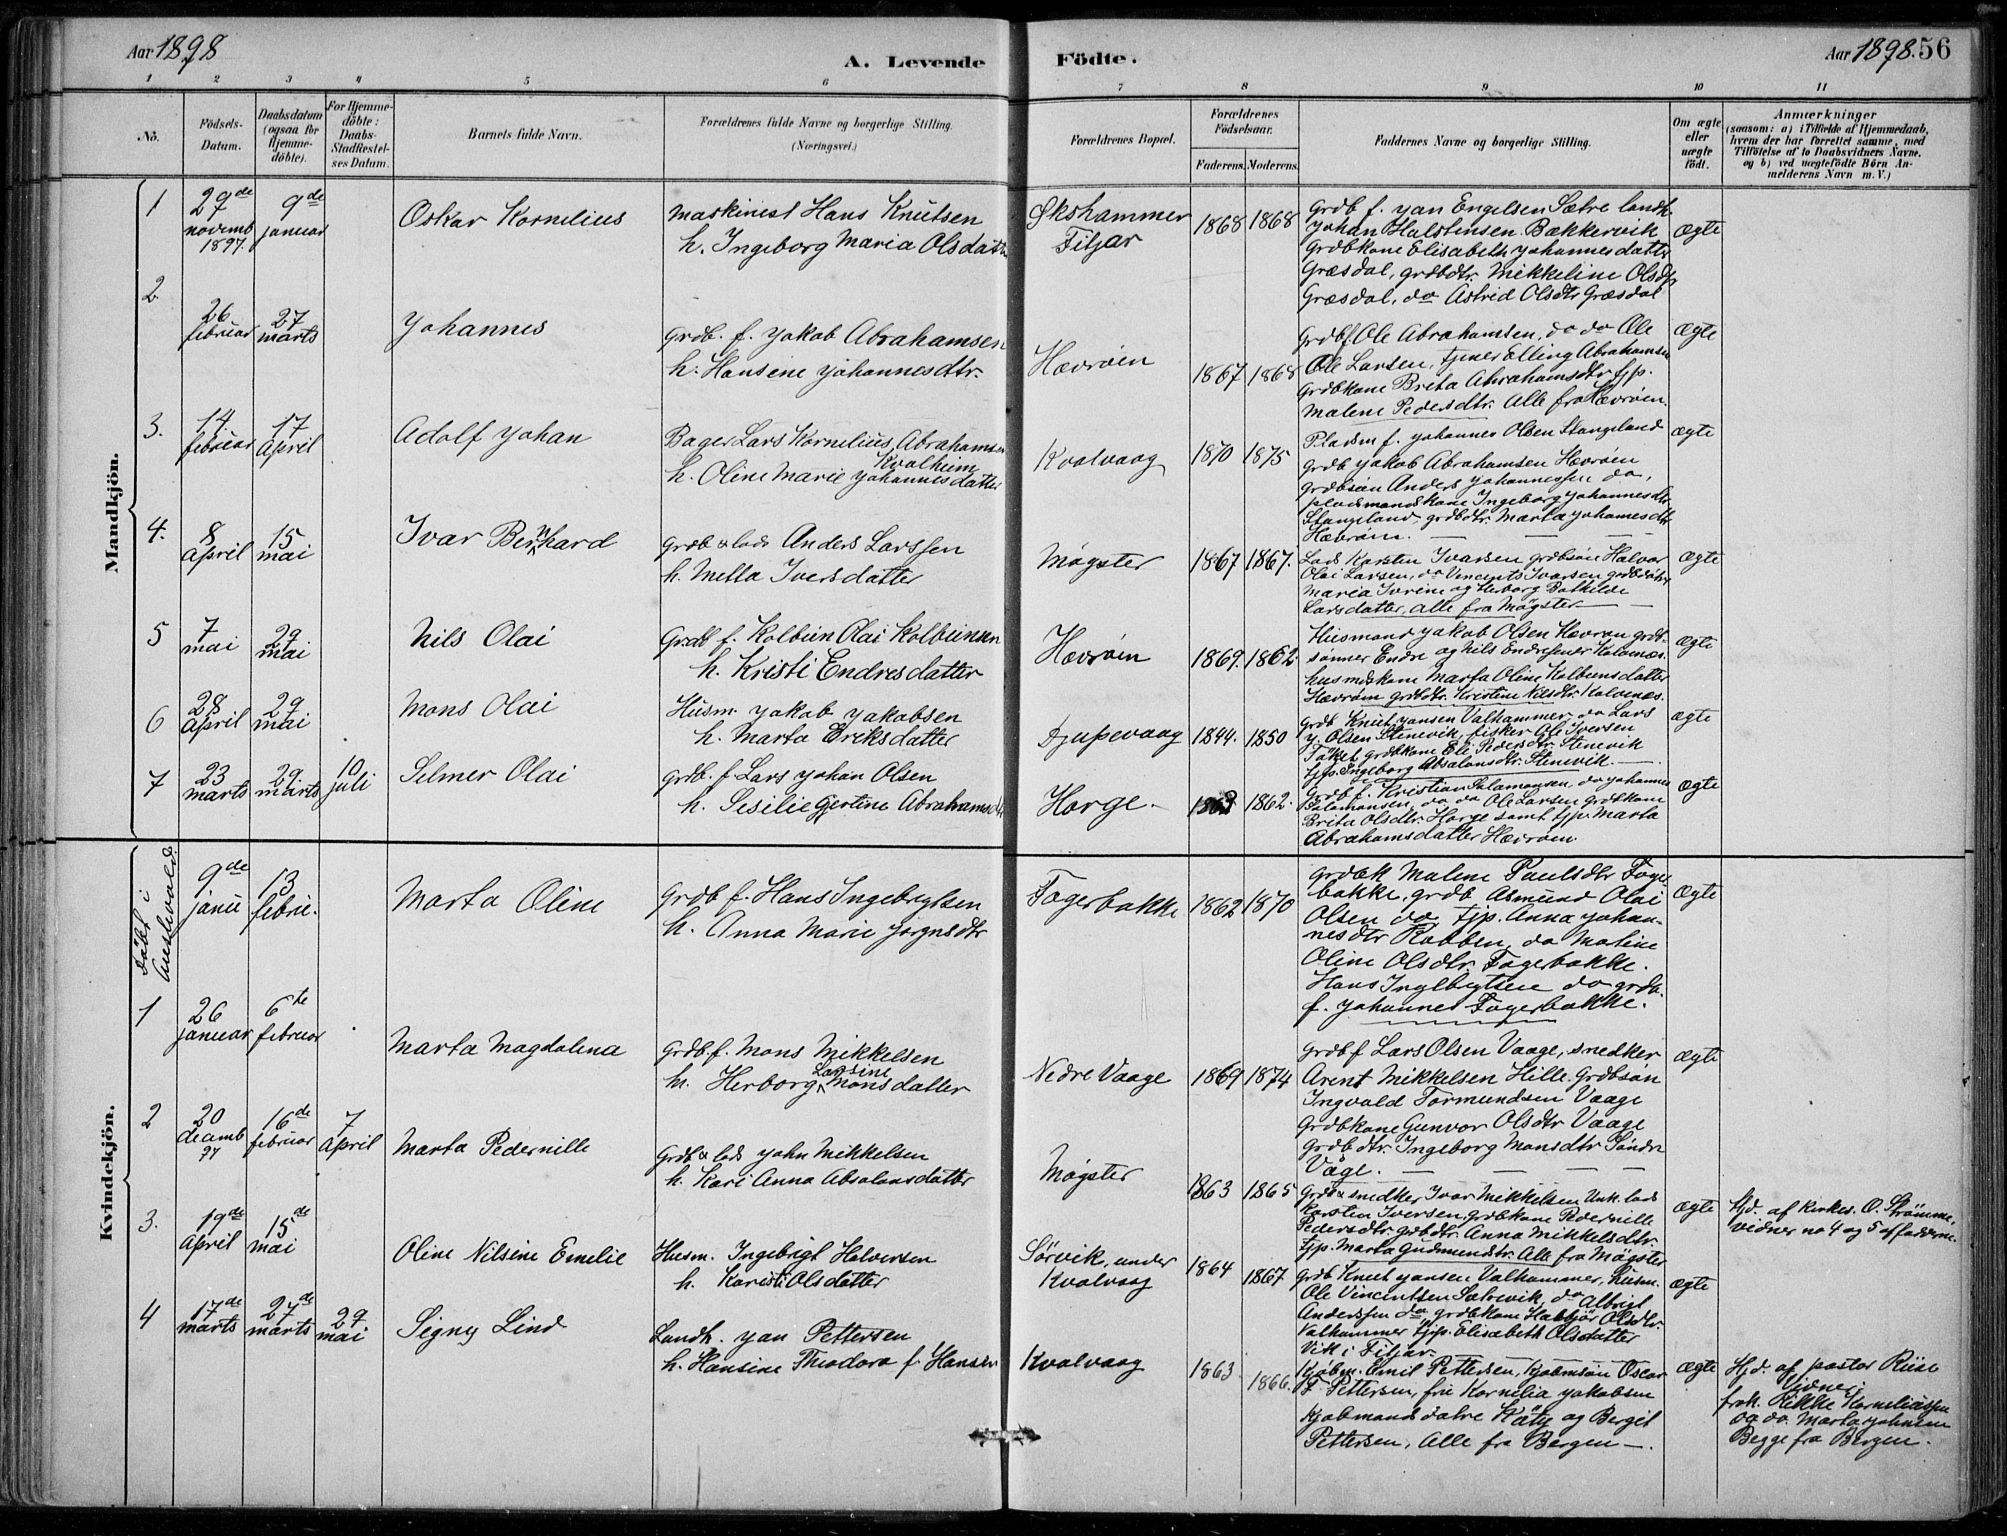 Aar 1898
A. Levende Födte.
Aar 1898. 56
1 2 3 4 5 6 7 8 9 10 11
No.
Födsels-Datum.
Daabsdatum (ogsaa for Hjemme-döbte).
For Hjemme-döbte: Daabs-Stadfæstel-ses Datum.
Barnets fulde Navn.
Forældrenes fulde Navne og borgerlige Stilling. (Næringsvei.)
Forældrenes Bopæl.
Forældrenes Födselsaar.
Faderens. Moderens.
Faddernes Navne og borgerlige Stilling.
Om ægte eller uægte födt.
Anmærkninger (saasom: a) i Tilfælde af Hjemmedaab, hvem der har forrettet samme, med Tilföielse af to Daabsvidners Navne, og b) ved uægtefödte Börn An-melderens Navn m. V.)
Mandkjön.
1
29de novemb 1897.
9de januar
Oskar Kornelius
Maskinest Hans Knutsen
h. Ingeborg Maria Olsdatter
Økshammer
Fitjar
1868 1868
Grdb f. Jan Engelsen Sætre landh.
Johan Halstinsen Bækkervik
Grdbkone Elisabeth Johannesdatter
Græsdal, grdbdtr. Mikkeline Olsdtr
Græsdal, do Astrid Olsdtr Græsdal
ægte
2
26 februar
27 marts
Johannes
Grdb. f. Jakob Abrahamsen
h. Hansine Johannesdtr.
Hævrøen
1867 1868
Grdbf Ole Abrahamsen, do do Ole
Ole Larsen, tjener Elling Abrahamsen
Grdbkone Brita Abrahamsdtr tjp.
Malene Pedersdtr. Alle fra Hævrøen.
ægte
3.
14. februar
17 April
Adolf Johan
Bager Lars Kornelius Abrahamsen
Kvalheim
h. Oline Marie Johannesdatter
Kvalvaag
1870 1875
Pladsm f. Johannes Olsen Stangeland
grdb Jakob Abrahamsen Hævrøen
grdbsøn Anders Johannessen do,
pladsmandskone Ingeborg Johannesdtr
Stangeland, grdbdtr. Marta Johannesdtr
Hævrøen.
ægte
4.
8 april
15 mai
Ivar Bernhard
Grdb & lods Anders Larssen
h. Mella Iversdatter
Møgster
1867 1867.
Lods Karsten Ivarsen grdbsøn Halvor
Olai Larsen, do Vincents Ivarsen grdbdøtre
Maria Ivrine og Herborg Bathilde
Larsdatter, alle fra Møgster
ægte
5
7 mai
29 mai
Nils Olai
Grdb f. Kolbein Olai Kolbeinsen
h. Kristi Endresdatter
Hævrøen
1869. 1862.
Husmand Jakob Olsen Hævrøen grdb-
sønner Endre og Nils Endresener Kalvenæs.
husmdskone Marta Oline Kolbeinsdatter
Hævrøen grdbdtr. Kristine Nilsdtr Kalvenæs.
ægte
6
28 april
29 mai
Mons Olai
Husm. Jakob Jakobsen
h. Marta Eriksdatter
Djupevaag
1844. 1850
Grdb Knut Jansen Valhammer, do Lars
J. Olsen Stenevik, fisker Ole Iversen
Tøkset grdbkone Eli Pedersdtr. Stenevik
tjp. Ingeborg Absalonsdtr. Stenevik.
ægte
7
23 marts
29. marts
10 juli
Selmer Olai
grdb. f Lars Johan Olsen
h. Sesilie Gjertine Abrahamsdtr
Horge.
1862.
Grdb f. Kristian Salamonsen, do Johannes
Salamonsen, do do Ole Larsen grdbkone
Brita Olsdtr. Horge samt tjp. Marta
Abrahamsdatter Hævrøen.
ægte
Kvindekjön.
Døbt i Austevold.
9de janu
13 febru.
Marta Oline
Grdb f. Hans Ingebrigtsen
h. Anna Marie Jørgnsdtr
Fagerbakke
1862 1870
Grdbk Malene Paulsdtr Fager
bakke, grdb Asmund Olai
Olsen do tjp. Anna Johan-
nesdtr Rabben, do Matine
Oline Olsdtr. Fagerbakke.
Hans Inglbrigtsen do grdb.
f. Johannes Fagerbakke.
ægte
1
26 januar
6te februar
Marta Magdalena
Grdb. f. Mons Mikkelsen
h. Herborg Larsine Monsdatter
Nedre Vaage
1869 1874
Grdb f Lars Olsen Vaage, snedker
Arent Mikkelsen Hille. Grdbsøn
Ingvald Tormundsen Vaage
Grdbkone Gunvor Olsdtr Vaage
Grdb dtr. Ingeborg Monsdtr Søndre
Våge.
ægte
2
20 decemb 97
16de februar
7 april
Marta Pedernille
Grdb & lods John Mikkelsen
h. Kari Anna Absalonsdatter
Møgster
1863 1865
Grdb & snedker Ivar Mikkelsen Unk. lods
Karsten Iversen, grdbkone Pedernille
Pedersdtr. grdbdtr. Anna Mikkelsdtr.
tjp. Marta Gudmundsdtr. Alle fra Møgster
ægte
Hjd. af Kirkes. O. Strømme,
vidner no 4 og 5 af fadderne.
3.
19de april
15de mai
Oline Nilsine Emelie
Husm. Ingebrigt Halversen
h. Karista Olsdatter
Sørvik, under
Kvalvaag
1864 1867
Grdb Knut Jansen Valhammer, husm.
Ole Vincentsen Sørevik, do Albrigt
Anderssen do, grdbkone Habjør Olsdtr.
Valhammer tjp. Elisabeth Olsdatter
Vik i Fitjar.
ægte
4
17de marts
27de marts
29 mai
Signy Lind
Landh. Jan Pettersen
h. Hansine Theodora f. Hansen
Kvalvaag
1863 1866.
Kjøbm. Emil Pettersen, kjøbmsøn Oscar
F Pettersen, fru Kornelia Jakobsen
kjøbmandsdøtre Käty og Berget
Pettersen, Alle fra Bergen.
ægte
Hjd. af pastor Riise
Vidner:
frøk. Rikke Korneliussen
og do. Marta Johnsen
Begge fra Bergen.